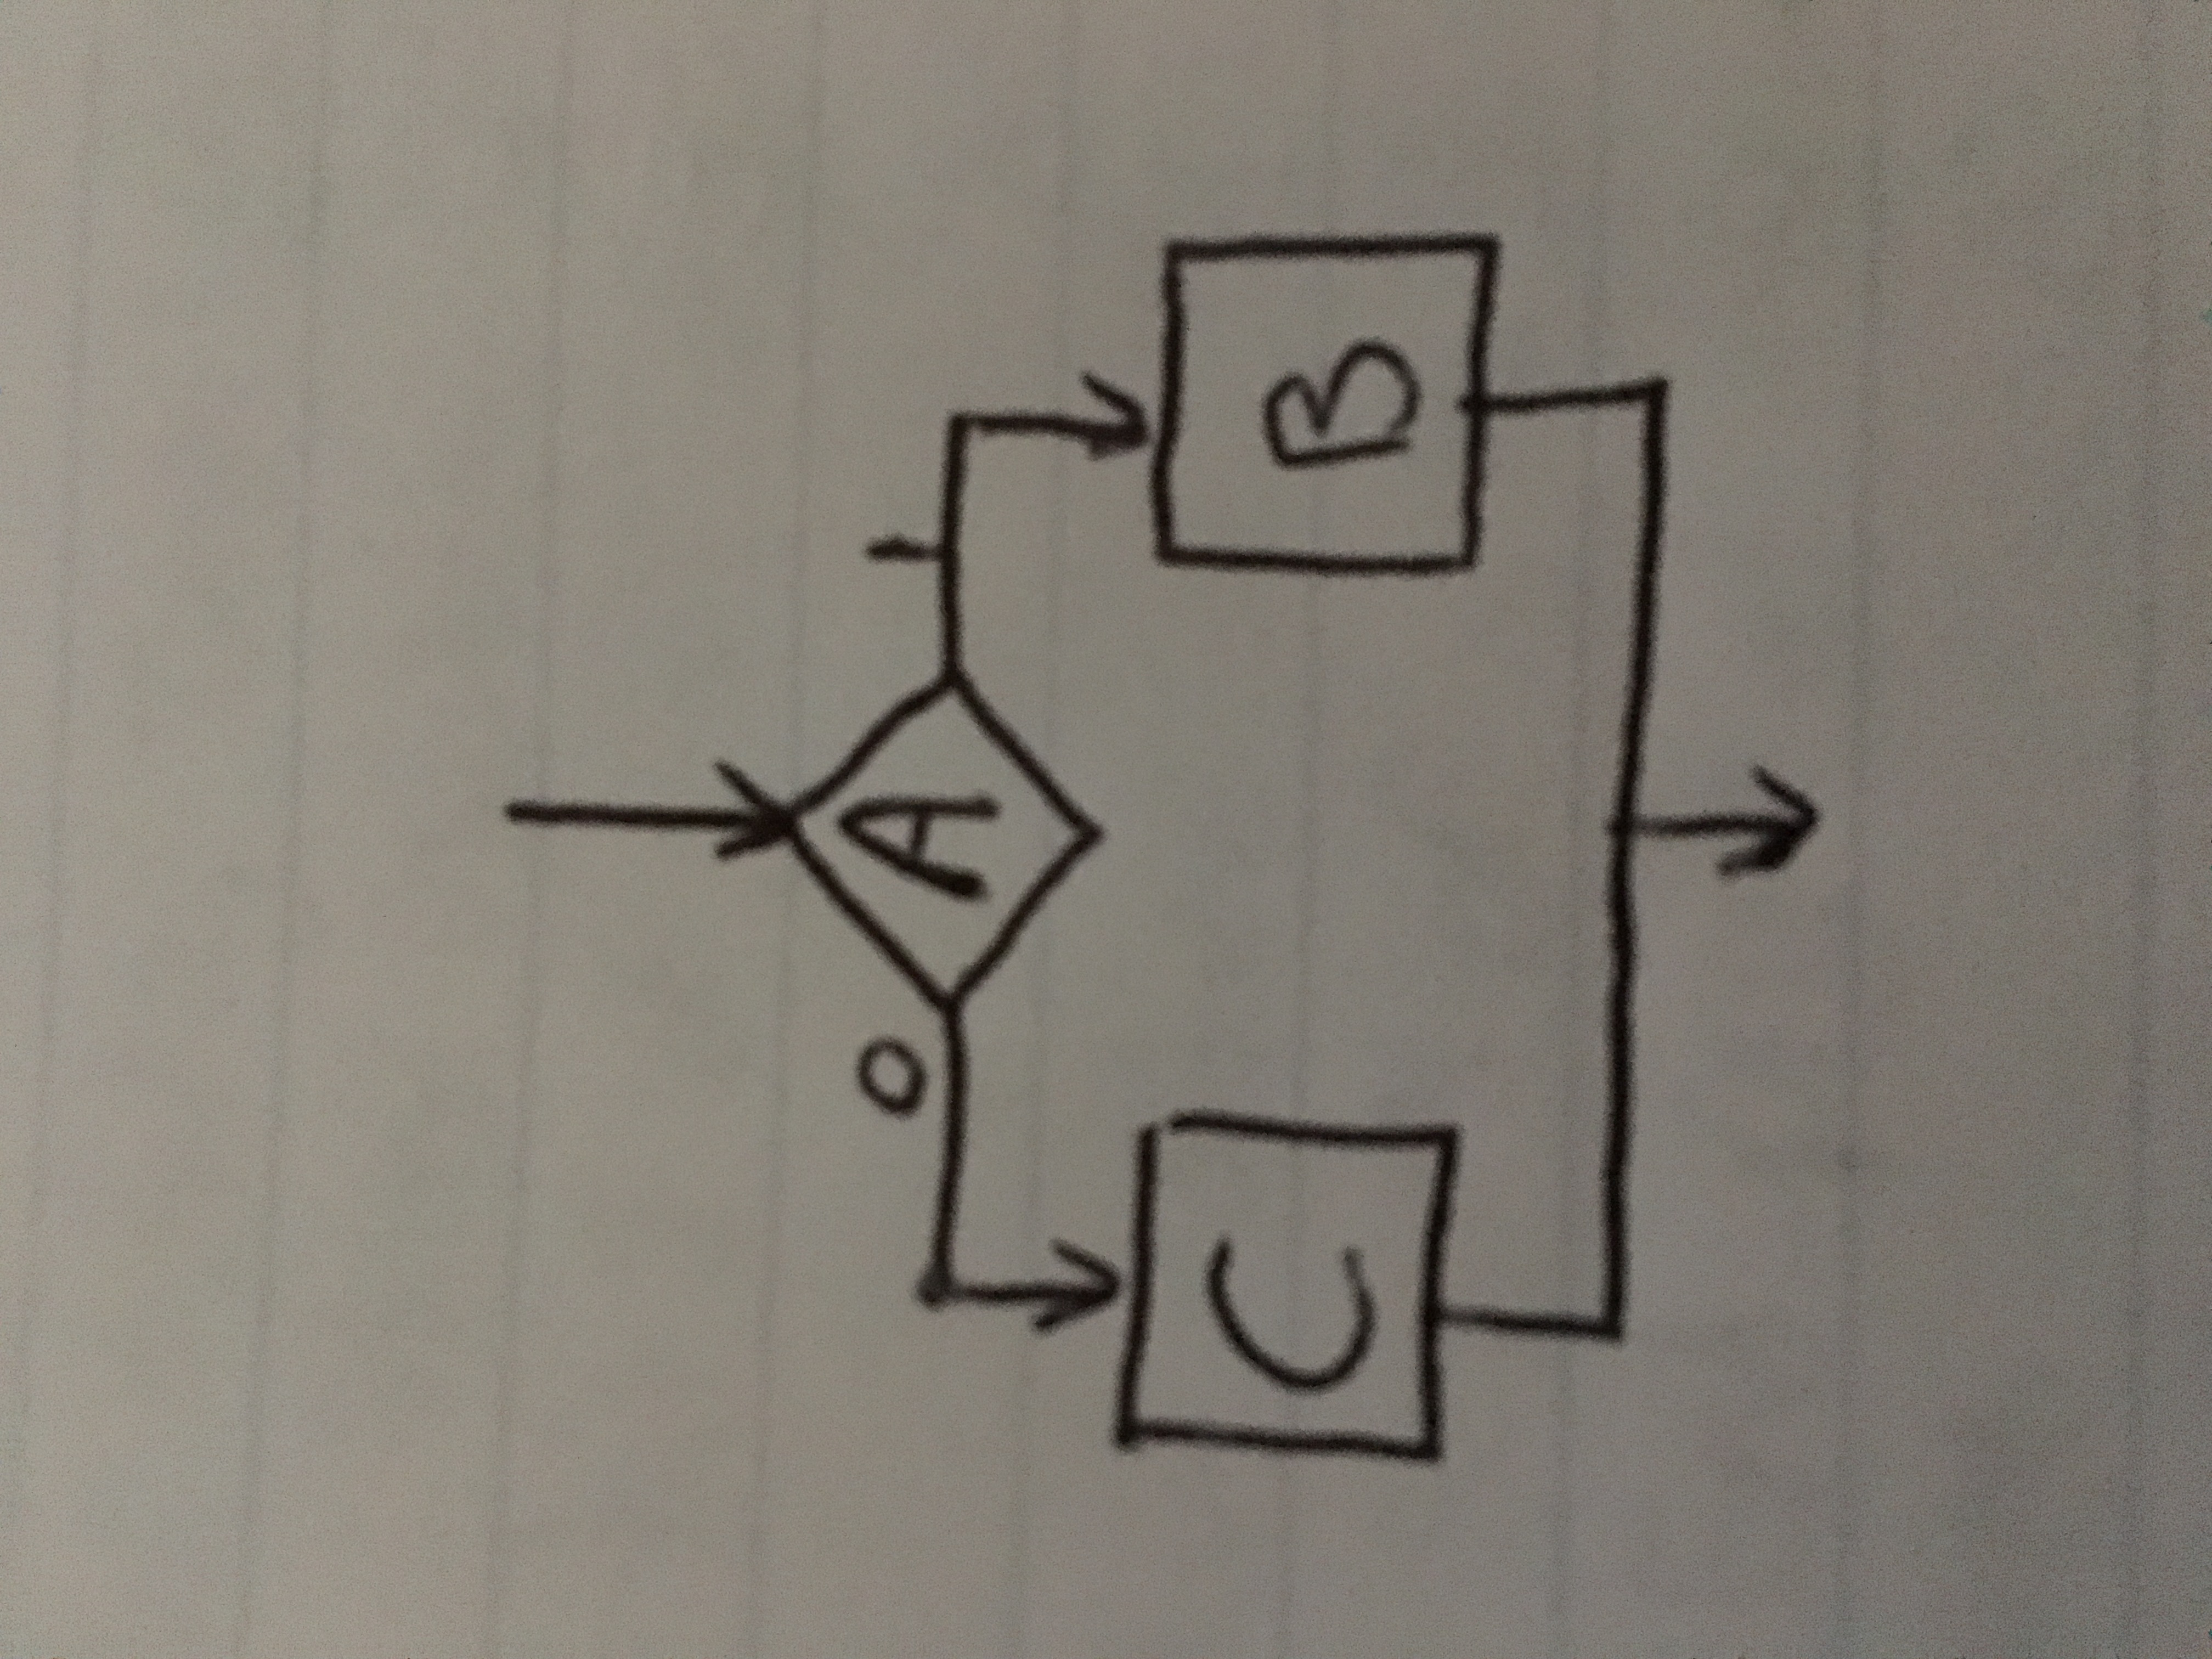 0 A 1
C B